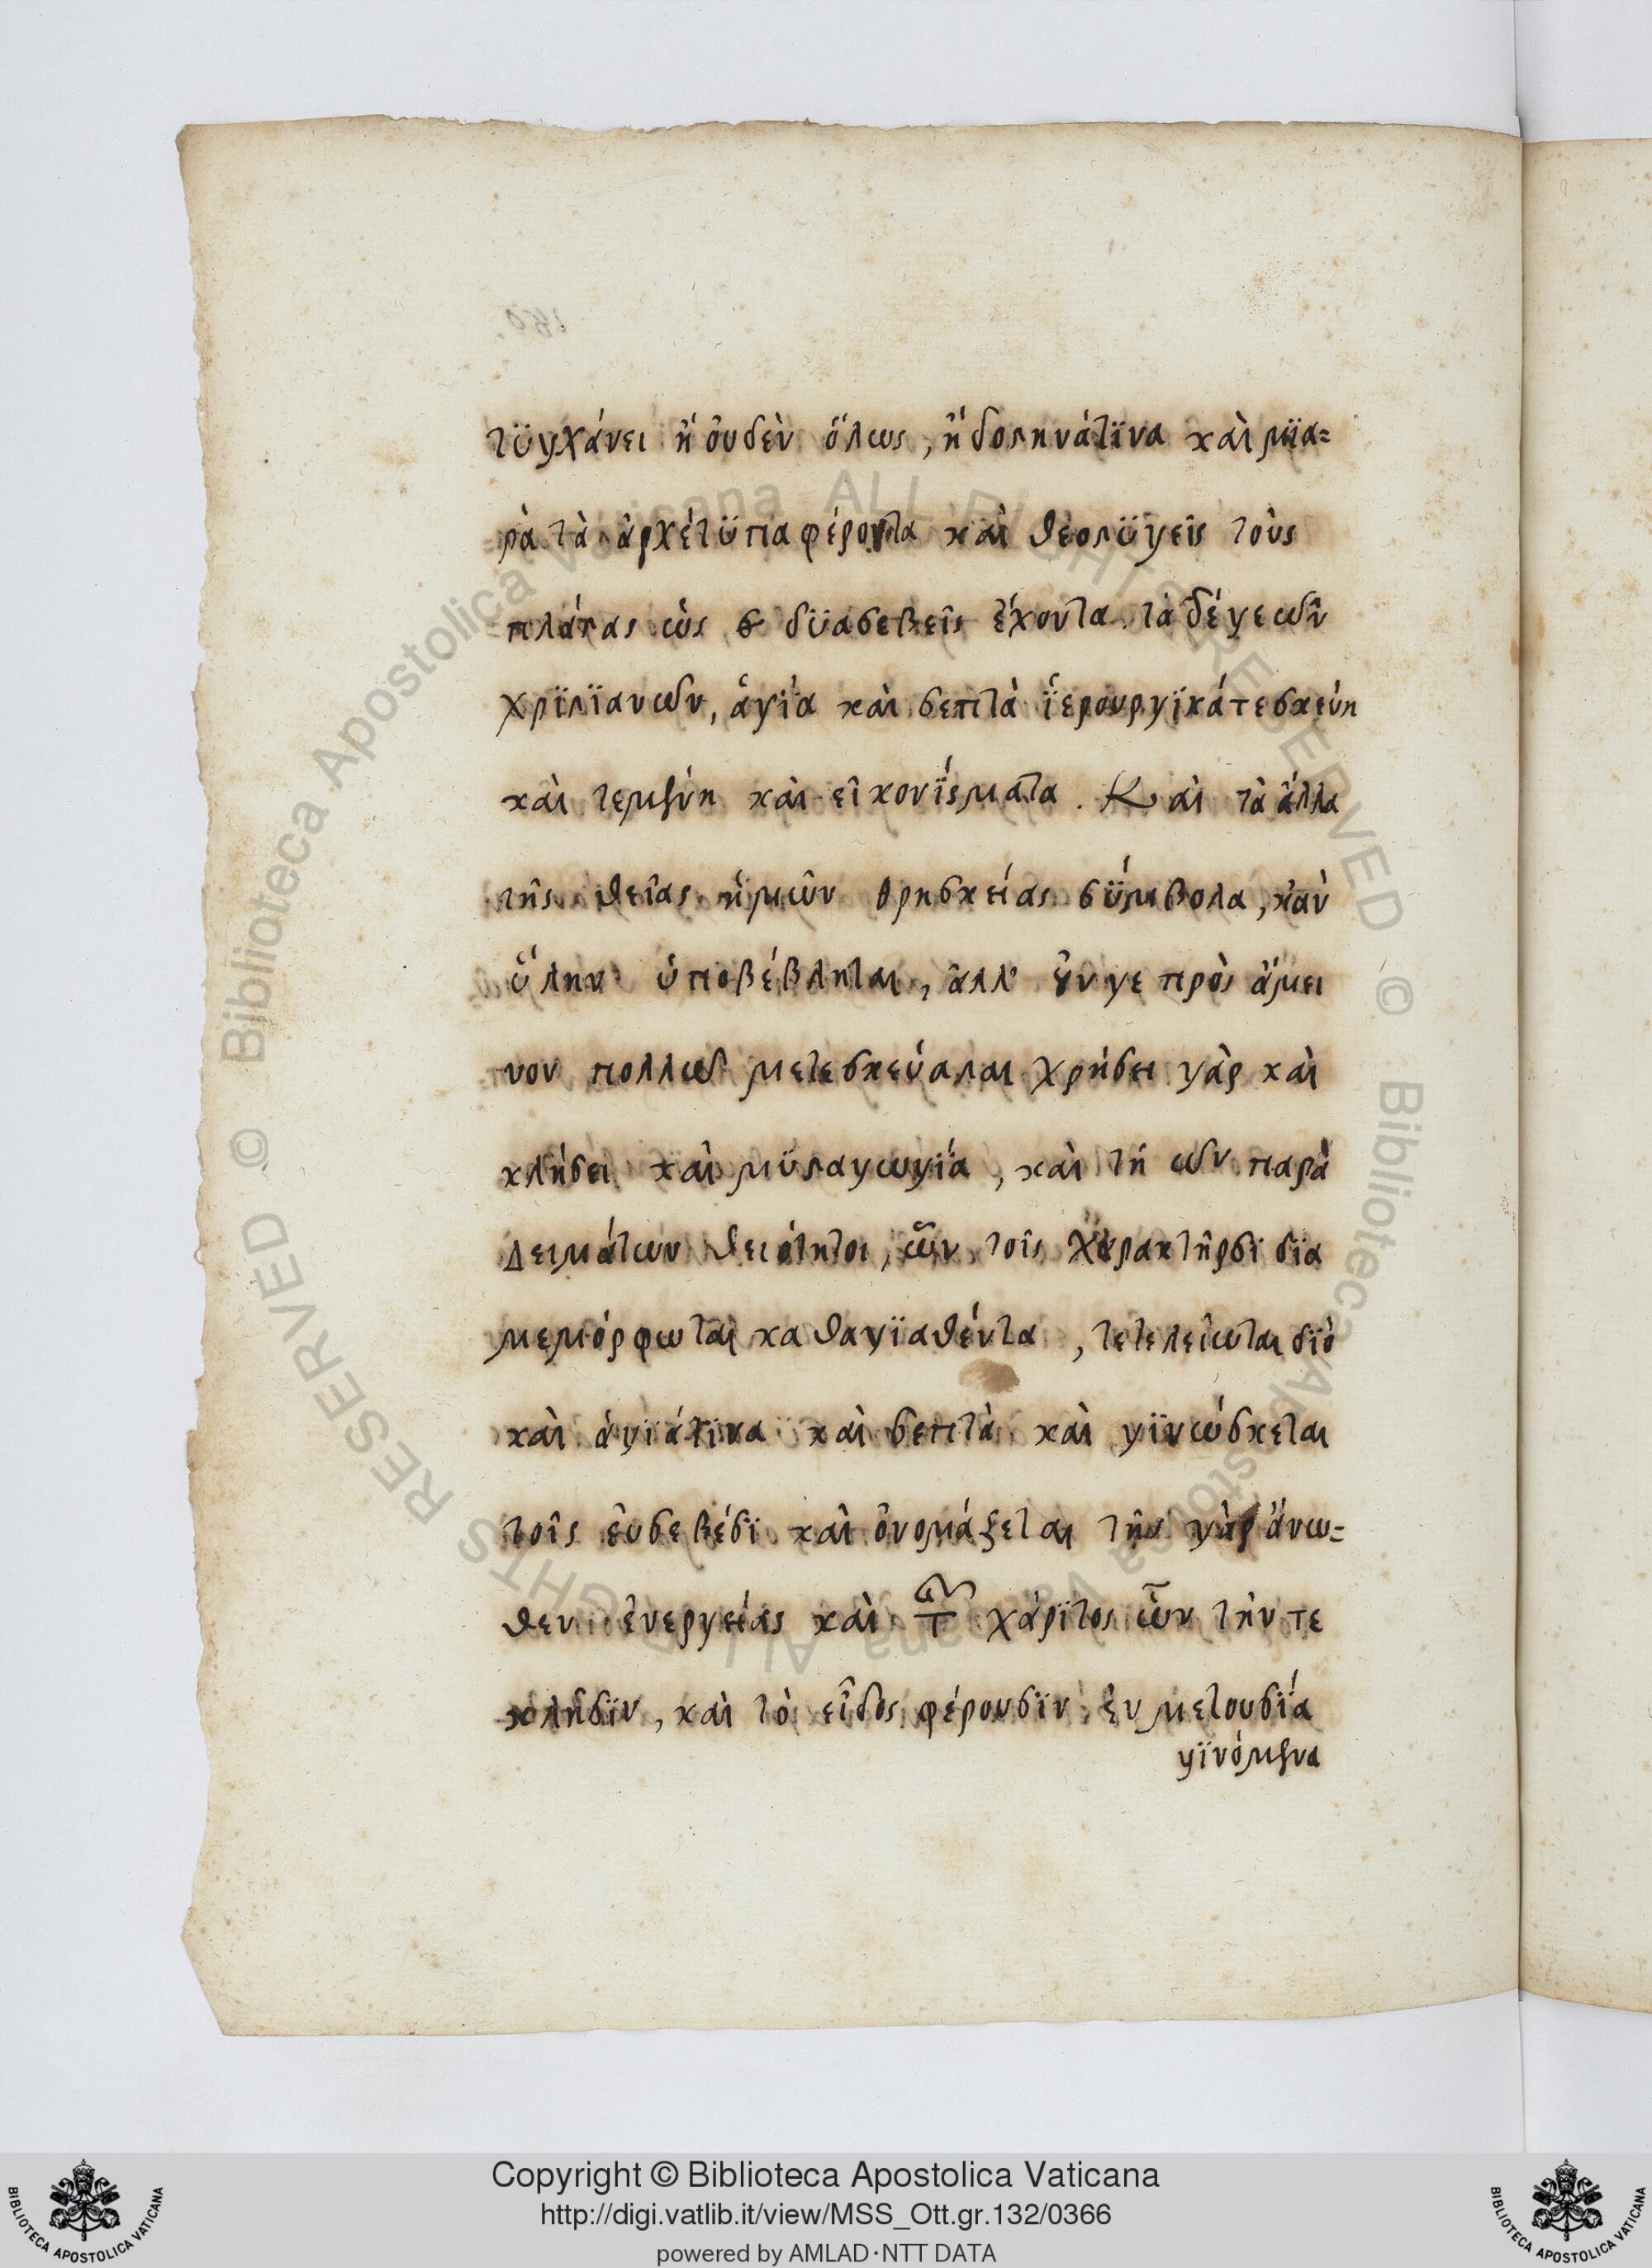 τϋγχάνει ἢ οὐδὲν ὅλως, ἢ δοϛηνάτϊνα καὶ μϊα=
ρὰ τὰ ἀρχέτϋπα φέροντα καὶ θεοϛϋγεῖς τοὺς
πλάϛας ὡς δϋσσεβεῖς ἔχοντα. τὰ δέγε ῶν
χρϊϛϊανῶν, ἁγία καὶ σεπτὰ ϊερουργϊκάτε σκεύη
καὶ τεμένη καὶ εἰκονΐσματα. Καὶ τὰ ἄλλα
τῆς θείας ἡμῶν θρησκείας σύμβολα, κἀν
ὕλην ὑποβέβληται, ἀλλ' οὖνγε πρὸς ἄμει
νον πολλῶ μετεσκεύαϛαι χρήσει γὰρ καὶ
κλήσει καὶ μϋϛαγωγία, καὶ τῆ ῶν παρα
δειγμάτων θειότητοι, ὧν τοῖς χαρακτῆρσϊ δϊα
μεμόρφωται καθαγϊαθέντα, τετελείωται δϊὸ
καὶ ἁγϊάτϊνα καὶ σεπτὰ καὶ γϊνώσκεται
τοῖς εὐσεβέσϊ καὶ ὀνομάζεται τῆς γὰρ ἄνω=
θεν ἐνεργείας καὶ τ χάρϊτος ὧν τήν τε
κλῆσϊν, καὶ τὸ εἶδος φέρουσϊν ἐν μετουσΐα
γϊνόμενα
Copyright © Biblioteca Apostolica Vaticana
http://digi.vatlib.it/view/MSS_Ott.gr.132/0366
powered by AMLAD·NTT DATA